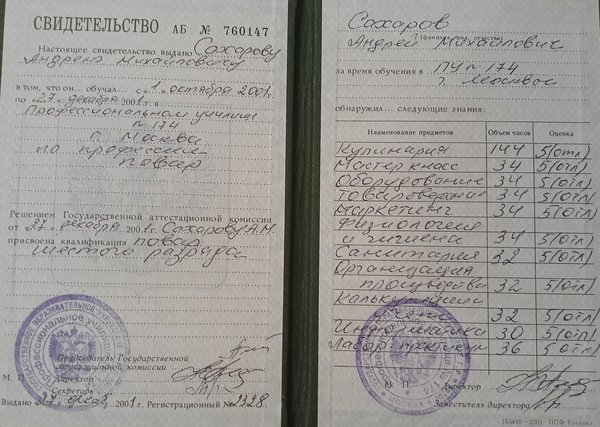 СВИДЕТЕЛЬСТВО АБ № 760147
Настоящее свидетельство выдано Сахарову
Андрею Михайловичу
в том, что он обучал с «1» октября 2001 г.
по «27» декабря 2001 г. в
Профессиональном училище
№ 174
г. Москва
по профессии
повар
Решением Государственной аттестационной комиссии
от «27» декабря 2001 г. Сахарову А.М.
присвоена квалификация повар
шестого разряда
Председатель Государственной
аттестационной комиссии
Директор
Секретарь
М. П.
Выдано 27 2001 г. Регистрационный № 2328
Сахаров
(фамилия, имя, отчество)
Андрей Михайлович
за время обучения в ПУ № 174
г. Москвы
обнаружил следующие знания:
Наименование предметов Объем часов Оценка
Кулинария 144 5(отл)
Мастер класс 34 5(отл)
Оборудование 34 5(отл)
Товароведение 34 5(отл)
Маркетинг 34 5(отл)
Физиология
и гигиена 34 5(отл)
Санитария 32 5(отл)
Организация
производства 32 5(отл)
Калькуляция
32 5(отл)
Информатика 30 5(отл)
Лабор практикум 36 5(отл)
М. П.
Директор
Заместитель директора
183440—2001 ППФ Гознака